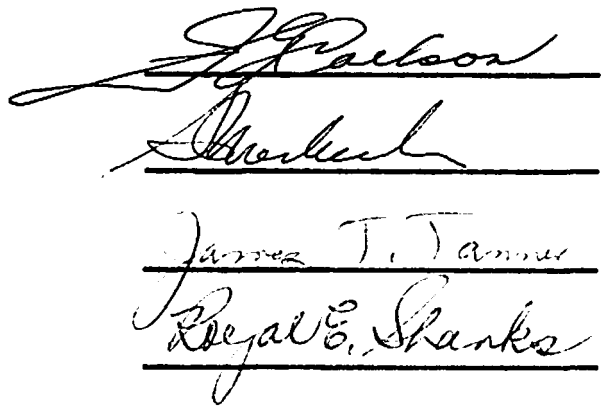 J G Carlson
James T. Tanner
Royal E. Shanks